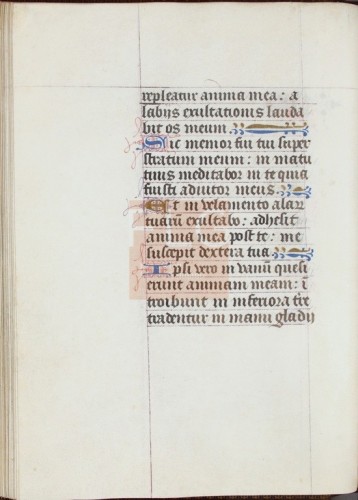 repleatur anima mea: a
labijs exultationis lauda
bit os meum.
Sic memor fui tui super
stratum meum: in matu
tinis meditabor in te quia
fuisti adiutor meus.
Et in velamento alar
tuarū exultabo: adhesit
anima mea post te: me
suscepit dextera tua.
Ipsi vero in vanū quesi
erunt animam meam: ī
troibunt in inferiora tr̄e
tradentur in manu gladij